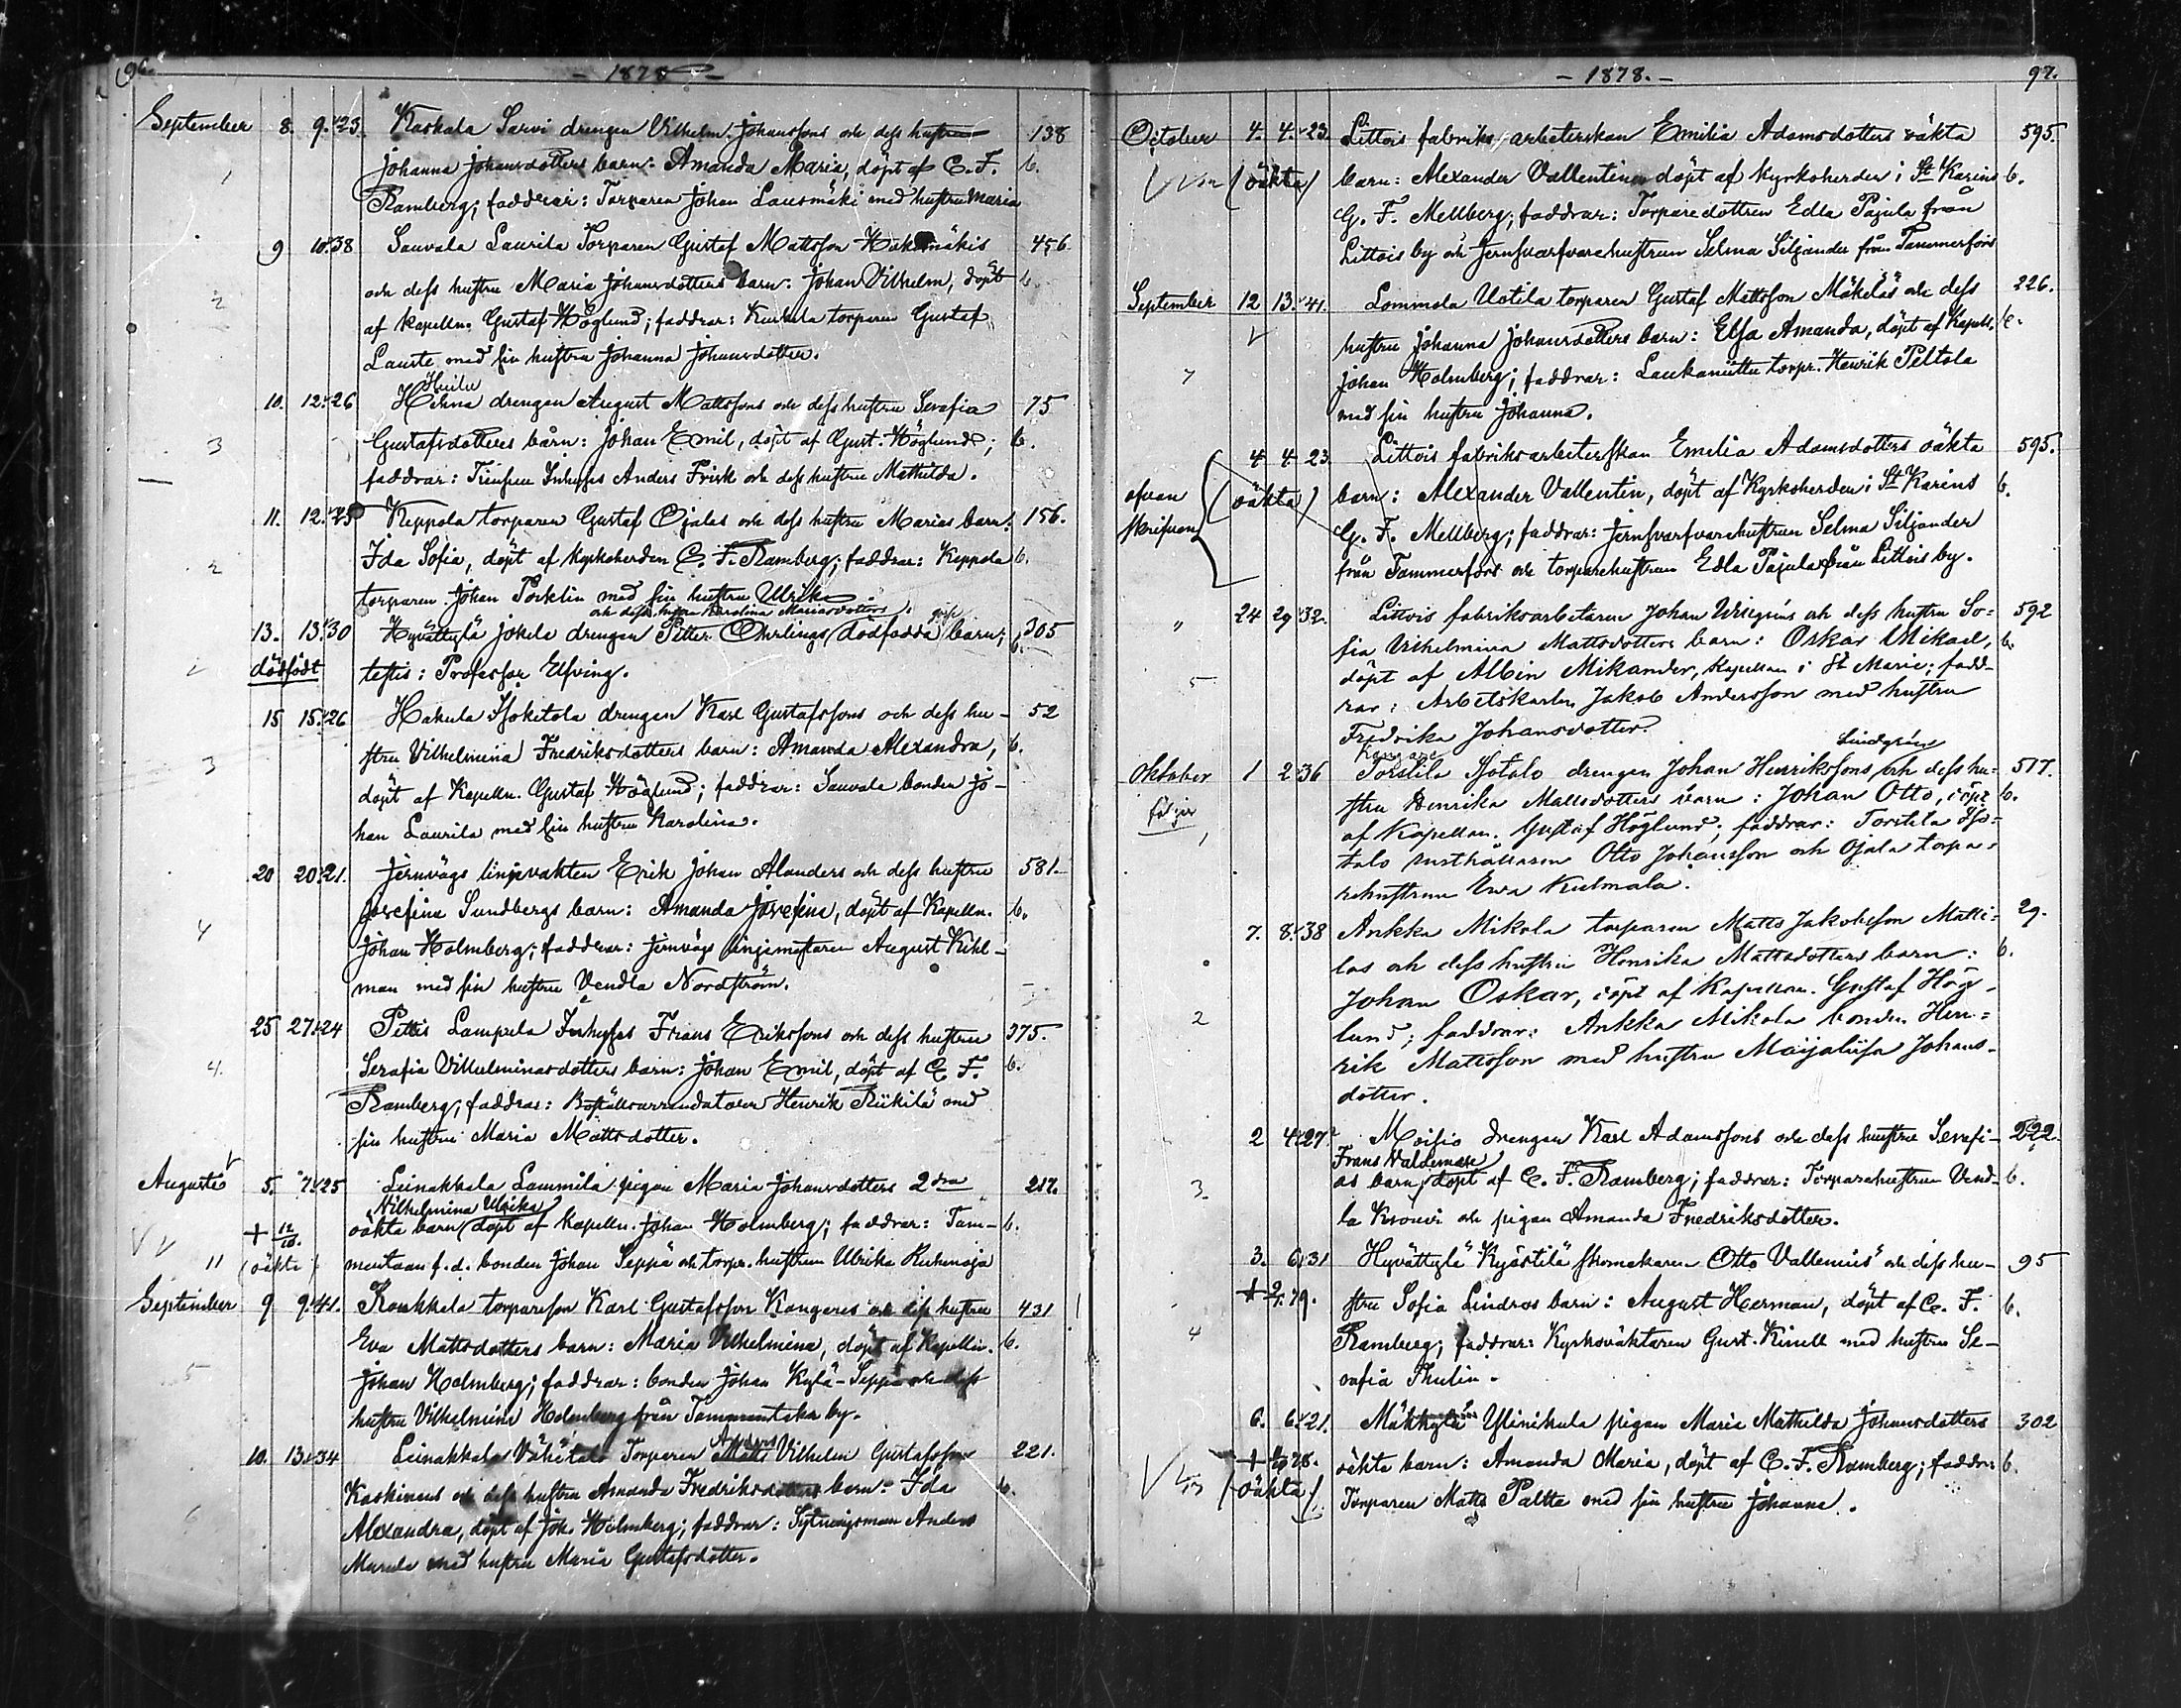 96.
- 1878 -
September 8. 9. 23. Kaskala Sarvi drengen Vilhelm Johanssons och dess hustru 138
1 Johanna Johansdotters barn: Amanda Maria, döpt af C. F. b.
Ramberg; faddrar: Torparen Johan Lausmäki med hustru Maria
9 10. 38 Sauvala Laurila Torparen Gustaf Mattsson 456
2 och dess hustru Maria Johansdotters barn: Johan Vilhelm, döpt b.
af Kapelln. Gustaf Höglund; faddrar: torparen Gustaf
Lauste med sin hustru Johanna Johansdotter.
10. 12. 26 drengen August Mattssons och dess hustru Serafia 75
3 Gustafsdotters barn: Johan Emil, döpt af Gust. Höglund; b.
faddrar: Inhyses Anders Frisk och dess hustru Mathilda.
11. 12. Keppola torparen Gustaf Ojalas och dess hustru Marias barn: 156.
2 Ida Sofia, döpt af Kyrkoherden C. F. Ramberg; faddrar: Keppola b.
torparen Johan med sin hustru Ulrika.
och dess hustru Karolina Mariasdotters
13. 13. 30 Hyvättylä Jokela drengen Petter Öhrlings dödfödda barn; 305
dödfödt testis: Professor Elfving. b.
15 15. 26 Hakula Isokitola drengen Karl Gustafssons och dess hu- 52
3 stru Vilhelmina Fredriksdotters barn: Amanda Alexandra, b.
döpt af Kapelln. Gustaf Höglund; faddrar: Sauvala bonden Jo-
han Laurila med sin hustru Karolina.
20 20. 21. Jernvägs linjevakten Erik Johan Alanders och dess hustru 581.
4 Josefina Sundbergs barn: Amanda Josefina, döpt af Kapelln. b.
Johan Holmberg; faddrar: Jernvägs linjemästaren August Kihl-
man med sin hustru Vendla Nordström.
25 27. 24 Pettis Lampula Inhyses Frans Erikssons och dess hustru 375.
4. Serafia Vilhelminasdotters barn: Johan Emil, döpt af C. F. b.
Ramberg; faddrar: Boställsarrendatoren Henrik Riikilä med
sin hustru Maria Mattsdotter.
Augusti 5. 7. 25 Leinakkala Lammila pigan Maria Johansdotters 2dra 217.
Vilhelmina Ulrika
+ 12/10. oäkta barn, döpt af Kapelln. Johan Holmberg; faddrar: Tam- b.
11 (oäkta) mentaan f. d. bonden Johan Seppä och torpr. hustrun Ulrika
September 9 9. 41. Koukkela torpareson Karl Gustafsson Kangares och dess hustru 431
Eva Mattsdotters barn: Maria Vilhelmina, döpt af Kapelln. b.
5 Johan Holmberg; faddrar: bonden Johan Kylä-Seppä och dess
hustru Vilhelmina Holmberg från by.
10. 13. 34 Leinakkala Vähätalo Torparen Matts Vilhelm Gustafsson 221.
Anders
Koskinens och dess hustru Amanda Fredriksdotters barn: Ida b.
6 Alexandra, döpt af Joh. Holmberg; faddrar: Sytningsman Anders
Marula med hustru Maria Gustafsdotter.
- 1878. - 97.
October 4. 4. 23. Littois fabriks arbeterskan Emilia Adamsdotters oäkta 595.
(oäkta) barn: Alexander Vallentin, döpt af Kyrkoherden i St Karins b.
G. F. Mellberg; faddrar: Torparedottren Edla Pajula från
Littois by och Jernsvarfvarehustrun Selma Siljander från Tammerfors
September 12 13. 41. Lommola Uotila torparen Gustaf Mattsson Mäkeläs och dess 226.
hustru Johanna Johansdotters barn: Elsa Amanda, döpt af Kapell. b.
7 Johan Holmberg; faddrar: torpr. Henrik Peltola
med sin hustru Johanna.
4 4 23. Littois fabriksarbeterskan Emilia Adamsdotters oäkta 595.
ofvan (oäkta) barn: Alexander Vallentin, döpt af Kyrkoherden i St Karins b.
skrifven G. F. Mellberg; faddrar: Jernsvarfvarehustrun Selma Siljander
från Tammerfors och torparehustrun Edla Pajula från Littois by.
" 24 29 32. Littois fabriksarbetaren Johan och dess hustru So- 592
fia Vilhelmina Mattsdotters barn: Oskar Mikael, b.
5 döpt af Albin Mikander, Kapellan i St Marie; fadd-
rar: Arbetskarlen Jakob Andersson med hustru
Fredrika Johansdotter.
Lindgréns
Oktober 1 2 36 Torstila Isotalo drengen Johan Henrikssons och dess hu- 517.
stru Henrika Mattsdotters barn: Johan Otto, döpt b.
1 af Kapellan. Gustaf Höglund; faddrar: Torstila Iso-
talo rusthållaren Otto Johansson och Ojala torpa-
rehustrun Eva Kulmala.
7. 8. 38 Ankka Mikola torparen Matts Jakobsson Matti- 29.
las och dess hustru Henrika Mattsdotters barn: b.
Johan Oskar, döpt af Kapellan. Gustaf Hög-
2 lund; faddrar: Ankka Mikola bonden Hen-
rik Mattsson med hustru Maijaliisa Johans-
dotter.
2 4. 27. Moisio drengen Karl Adamssons och dess hustru Serafi-
Frans Valdemar
3. as barn, döpt af C. F. Ramberg; faddrar: Torparehustrun Vend- b.
la Krouvi och pigan Amanda Fredriksdotter.
3. 6. 31 Hyvättylä Kyöstilä skomakaren Otto Vallenius och dess hu- 95
79. stru Sofia Lindros barn: August Herman, döpt af C. F. b.
4 Ramberg; faddrar: Kyrkoväktaren Gust. Kinell med hustru Se-
rafia Thulin.
6. 6. 21. Mäkkylä Ylinikula pigan Maria Mathilda Johansdotters 302
78. oäkta barn: Amanda Maria, döpt af C. F. Ramberg; faddrar b.
(oäkta) Torparen Matts Paltta med sin hustru Johanna.